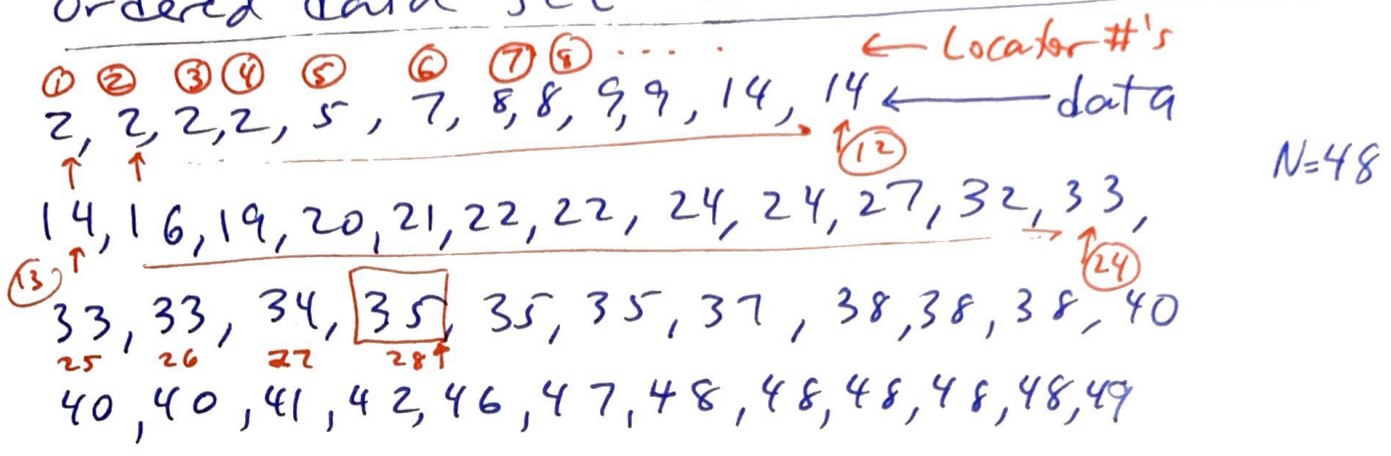 Ordered data set
① ② ③ ④ ⑤ ⑥ ⑦ ⑧ .... ← Locator #'s
2, 2, 2, 2, 5, 7, 8, 8, 9, 9, 14, 14 ← data
↑ ↑ ↑ ⑫
N=48
14, 16, 19, 20, 21, 22, 22, 24, 24, 27, 32, 33,
⑬ ↑ ↑ ㉔
33, 33, 34, 35, 35, 35, 37, 38, 38, 38, 40
25 26 27 28↑
40, 40, 41, 42, 46, 47, 48, 48, 48, 48, 48, 49